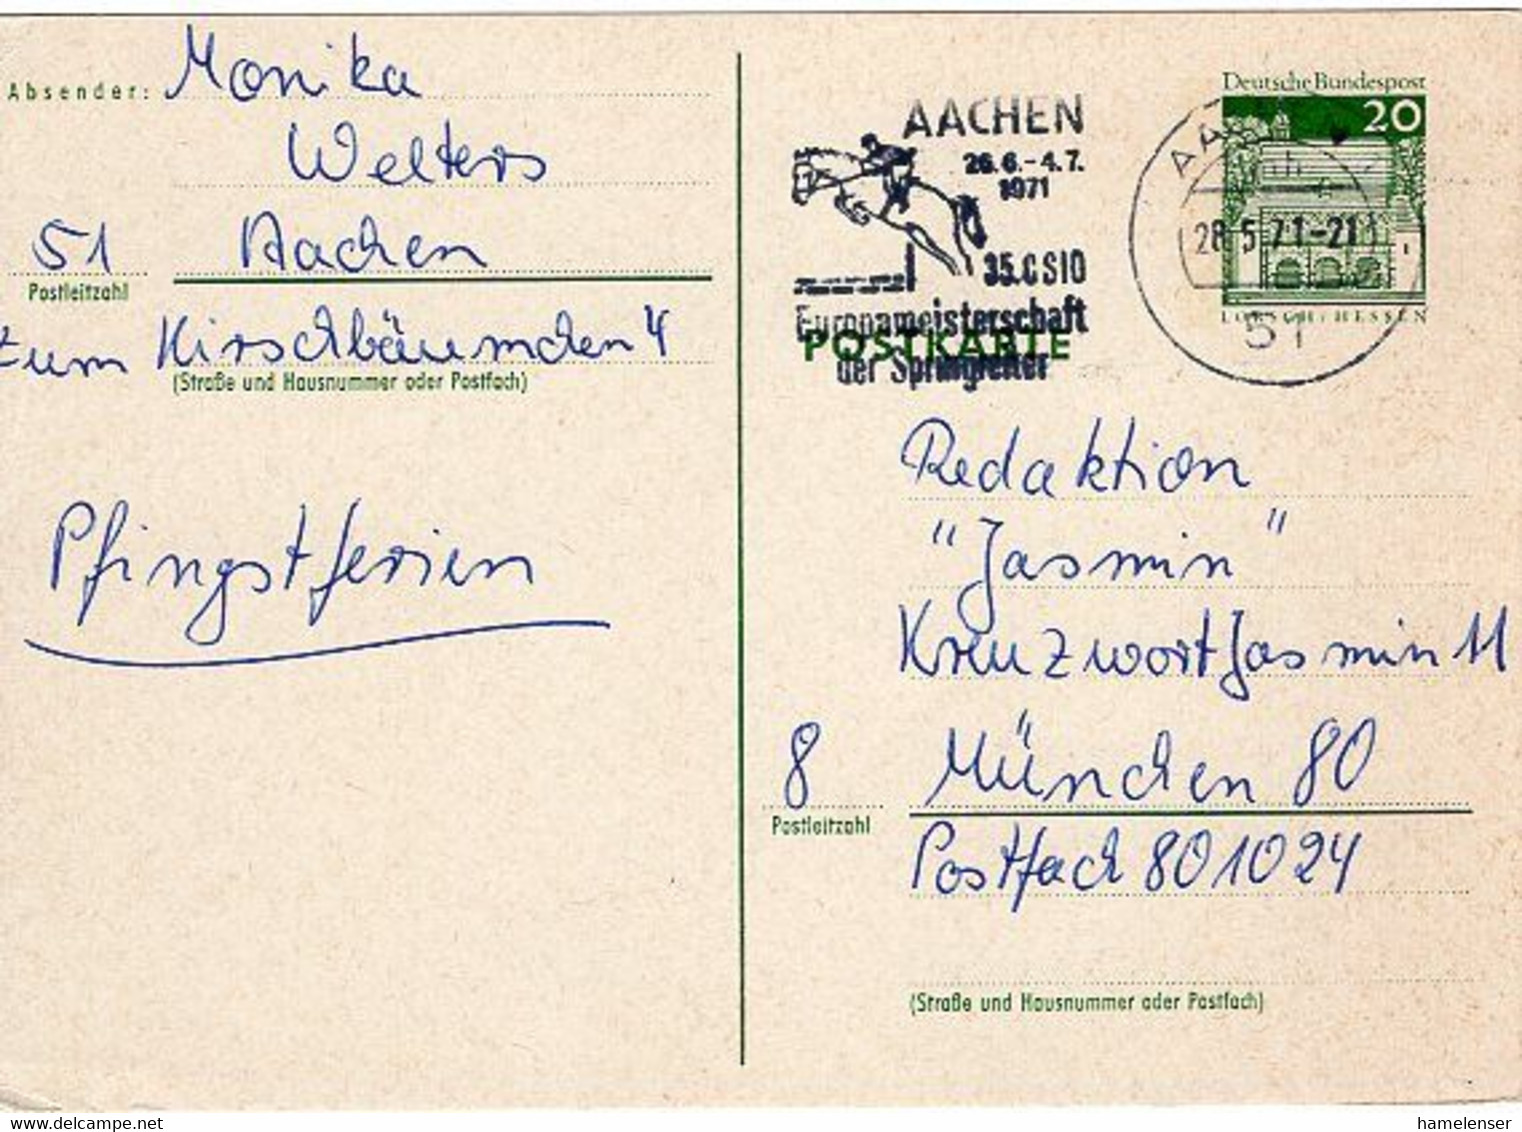 Absender: Monika
Welters
51 Aachen
Postleitzahl
zum Kirschbäumchen 4
(Straße und Hausnummer oder Postfach)
Pfingstferien
AACHEN
26.6.-4.7.
1971
35.CSIO
Europameisterschaft
der Springreiter
POSTKARTE
28.5.71-21
51
Deutsche Bundespost
20
LORSCH/HESSEN
Redaktion
"Jasmin"
Kreuzwort Jasmin 11
8 München 80
Postleitzahl
Postfach 801024
(Straße und Hausnummer oder Postfach)
www.delcampe.net
hamelenser